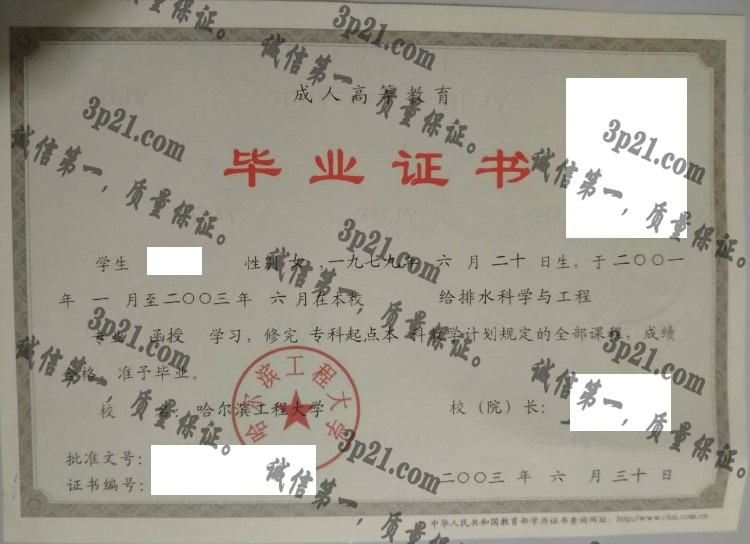 成人高等教育
毕业证书
学生 性别 女，一九七九年 六 月 二十 日生，于二〇〇一
年 一 月至二〇〇三年 六 月在本校 给排水科学与工程
专业 函授 学习，修完 专科起点本 科教学计划规定的全部课程，成绩
合格，准予毕业。
校 名：哈尔滨工程大学
校（院）长：
哈尔滨工程大学
批准文号：
证书编号：
二〇〇三 年 六 月 三十 日
中华人民共和国教育部学历证书查询网址：http://www.chsi.com.cn
3p21.com
诚信第一，质量保证。
3p21.com
诚信第一，质量保证。
3p21.com
诚信第一，质量保证。
3p21.com
诚信第一，质量保证。
3p21.com
诚信第一，质量保证。
3p21.com
诚信第一，质量保证。
3p21.com
诚信第一，质量保证。